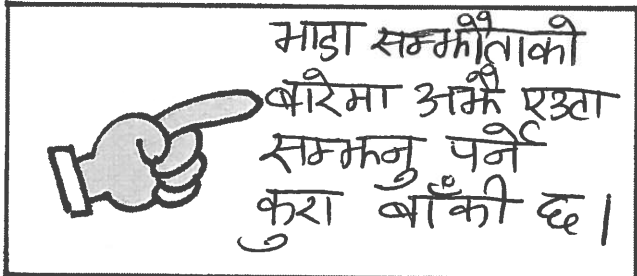 भाडा सम्झौताको
बारेमा अझै एउटा
सम्झनु पर्ने
कुरा बाँकी छ।